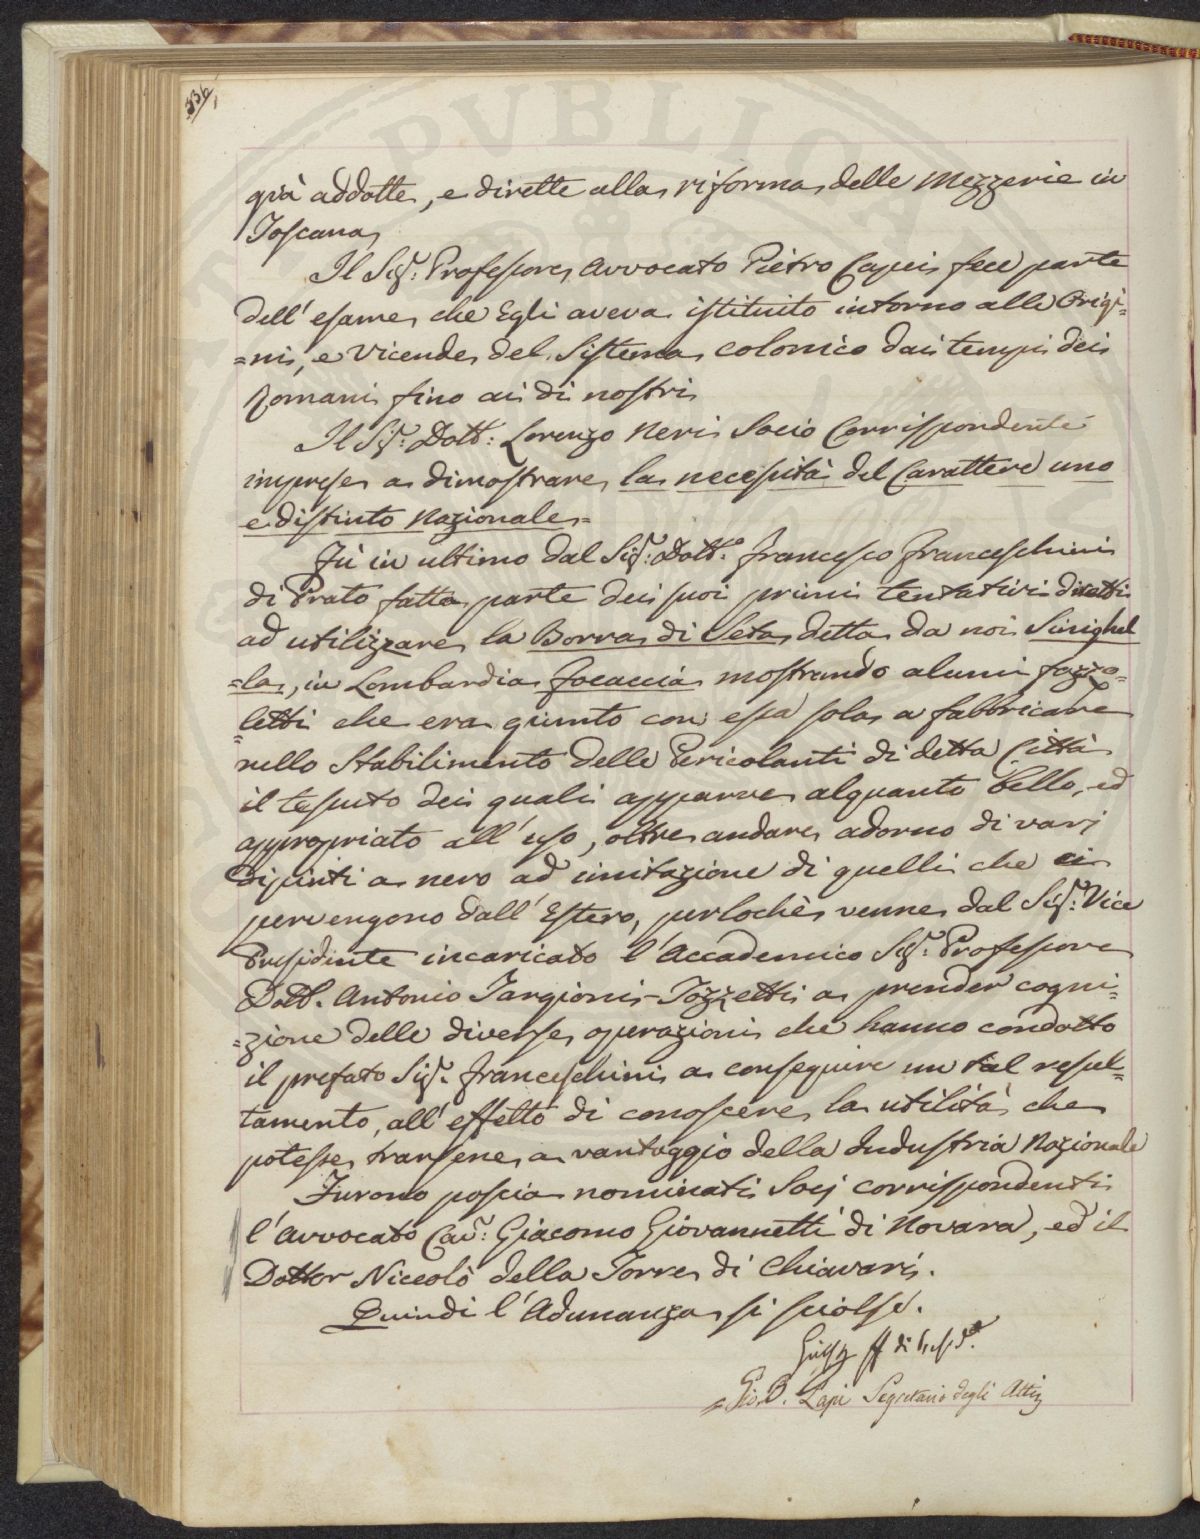 336
già addotte, e dirette alla riforma delle Mezzerie in
Toscana
Il Sig.r Professore Avvocato Pietro Capei fece parte
dell' esame che Egli aveva istituito intorno alle Origi-
=ni, e Vicende del Sistema colonico dai tempi dei
Romani fino ai dì nostri
Il Sig.r Dott: Lorenzo Neri Socio Corrispondente
imprese a dimostrare la necessità del Carattere uno
e distinto Nazionale=
Fù in ultimo dal Sig.r Dott.e Francesco Franceschini
di Prato fatta parte dei suoi primi tentativi diretti
ad utilizzare la Borra di Seta detta da noi Sinighel
=la, in Lombardia focaccia mostrando alcuni fazzo=
=letti che era giunto con essa sola a fabbricare
nello Stabilimento delle Pericolanti di detta Città
il tessuto dei quali apparve alquanto bello, ed
appropriato all' uso, oltre andare adorno di varj
dipinti a nero ad imitazione di quelli che ci
pervengono dall' Estero, perlochè venne dal Sig.r Vice
Presidente incaricato l'Accademico Sig.r Professore
Dott. Antonio Targioni-Tozzetti a prender cogni=
=zione delle diverse operazioni che hanno condotto
il prefato Sig.r Franceschini a conseguire un tal resul=
tamento, all' effetto di conoscere la utilità che
potesse trarsene a vantaggio della Industria Nazionale
Furono poscia nominati Socj corrispondenti
l'Avvocato Cav.r: Giacomo Giovannetti di Novara, ed il
Dottor Niccolò della Torre di Chiavari.
Quindi l'Adunanza si sciolse.
ff di
Gio. B. Lapi Segretario degli Atti